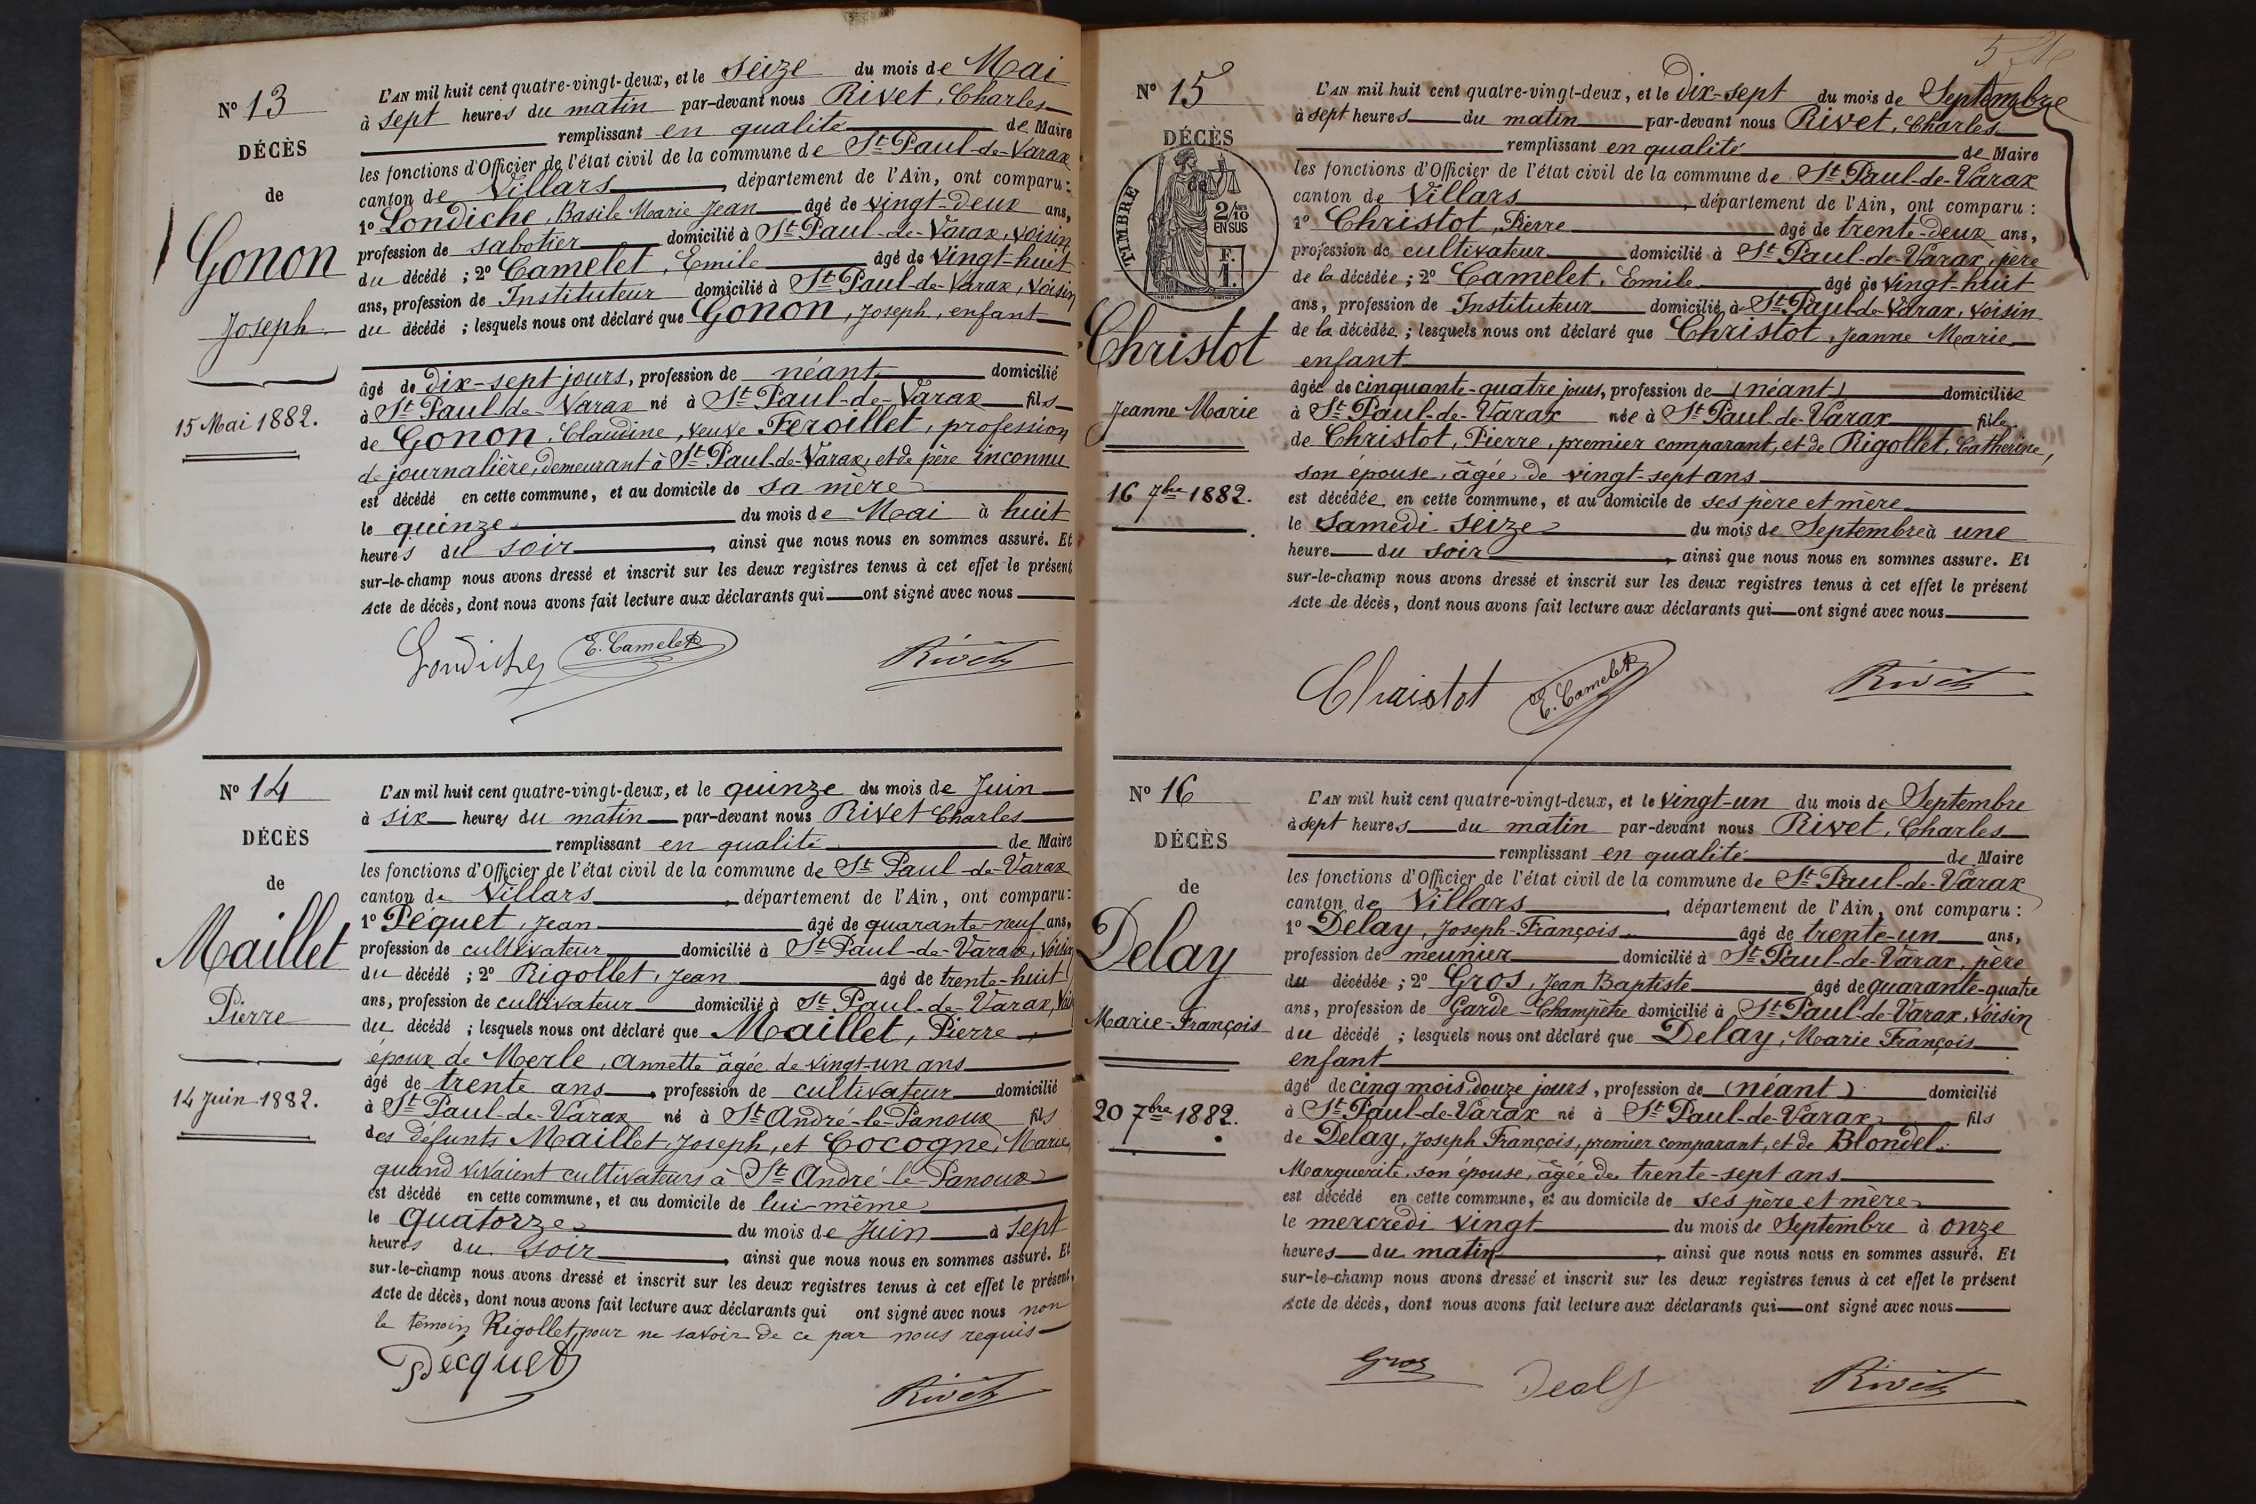 N° 13
DÉCÈS
de
Gonon
Joseph
15 Mai 1882.
L'AN mil huit cent quatre-vingt-deux, et le seize du mois de Mai
à sept heures du matin par-devant nous Rivet, Charles
remplissant en qualité de Maire
les fonctions d'Officier de l'état civil de la commune de St Paul-de-Varax
canton de Villars, département de l'Ain, ont comparu:
1° Londiche, Basile Marie Jean âgé de vingt-deux ans,
profession de sabotier domicilié à St Paul-de-Varax, voisin
du décédé ; 2° Camelet, Emile âgé de vingt-huit
ans, profession de Instituteur domicilié à St Paul-de-Varax, voisin
du décédé ; lesquels nous ont déclaré que Gonon, Joseph, enfant
âgé de dix-sept jours, profession de néant domicilié
à St Paul de Varax né à St Paul-de-Varax fils
de Gonon, Claudine, veuve Feroillet, profession
de journalière, demeurant à St Paul-de-Varax, et de père inconnu
est décédé en cette commune, et au domicile de sa mère
le quinze du mois de Mai à huit
heures du soir, ainsi que nous nous en sommes assuré. Et
sur-le-champ nous avons dressé et inscrit sur les deux registres tenus à cet effet le présent
Acte de décès, dont nous avons fait lecture aux déclarants qui ont signé avec nous
Londiche E. Camelet Rivet
N° 14
DÉCÈS
de
Maillet
Pierre
14 Juin 1882.
L'AN mil huit cent quatre-vingt-deux, et le quinze du mois de Juin
à six heures du matin par-devant nous Rivet Charles
remplissant en qualité de Maire
les fonctions d'Officier de l'état civil de la commune de St Paul-de-Varax
canton de Villars, département de l'Ain, ont comparu:
1° Péquet, Jean âgé de quarante-neuf ans,
profession de cultivateur domicilié à St Paul-de-Varax, voisin
du décédé ; 2° Rigollet, Jean âgé de trente-huit
ans, profession de cultivateur domicilié à St Paul-de-Varax,
du décédé ; lesquels nous ont déclaré que Maillet, Pierre,
époux de Merle, Annette âgée de vingt-un ans
âgé de trente ans, profession de cultivateur domicilié
à St Paul-de-Varax né à St André-le-Panoux fils
des défunts Maillet, Joseph, et Cocogne, Marie,
quand vivaient cultivateurs à St André-le-Panoux
est décédé en cette commune, et au domicile de lui-même
le quatorze du mois de Juin à sept
heures du soir, ainsi que nous nous en sommes assuré. Et
sur-le-champ nous avons dressé et inscrit sur les deux registres tenus à cet effet le présent
Acte de décès, dont nous avons fait lecture aux déclarants qui ont signé avec nous non
le témoin Rigollet, pour ne savoir de ce par nous requis
Pecquet Rivet
N° 15
DÉCÈS
TIMBRE
2/10
EN SUS
F.
1.
Christot
Jeanne Marie
16 7bre 1882.
L'AN mil huit cent quatre-vingt-deux, et le dix-sept du mois de Septembre
à sept heures du matin par-devant nous Rivet, Charles
remplissant en qualité de Maire
les fonctions d'Officier de l'état civil de la commune de St Paul-de-Varax
canton de Villars, département de l'Ain, ont comparu :
1° Christot, Pierre âgé de trente-deux ans,
profession de cultivateur domicilié à St Paul-de-Varax, père
de la décédée ; 2° Camelet, Emile âgé de vingt-huit
ans, profession de Instituteur domicilié à St Paul-de-Varax, voisin
de la décédée ; lesquels nous ont déclaré que Christot, Jeanne Marie
enfant
âgée de cinquante-quatre jours, profession de (néant) domiciliée
à St Paul-de-Varax née à St Paul-de-Varax fille
de Christot, Pierre, premier comparant, et de Rigollet, Catherine,
son épouse, âgée de vingt-sept ans
est décédée en cette commune, et au domicile de ses père et mère
le samedi seize du mois de Septembre à une
heure du soir, ainsi que nous nous en sommes assuré. Et
sur-le-champ nous avons dressé et inscrit sur les deux registres tenus à cet effet le présent
Acte de décès, dont nous avons fait lecture aux déclarants qui ont signé avec nous
Christot E. Camelet Rivet
N° 16
DÉCÈS
de
Delay
Marie-François
20 7bre 1882.
L'AN mil huit cent quatre-vingt-deux, et le vingt-un du mois de Septembre
à sept heures du matin par-devant nous Rivet, Charles
remplissant en qualité de Maire
les fonctions d'Officier de l'état civil de la commune de St Paul-de-Varax
canton de Villars, département de l'Ain, ont comparu :
1° Delay, Joseph-François âgé de trente-un ans,
profession de meunier domicilié à St Paul-de-Varax, père
du décédée ; 2° Gros, Jean Baptiste âgé de quarante-quatre
ans, profession de Garde-Champêtre domicilié à St Paul-de-Varax, voisin
du décédé ; lesquels nous ont déclaré que Delay, Marie François
enfant
âgé de cinq mois, douze jours, profession de (néant) domicilié
à St Paul-de-Varax né à St Paul-de-Varax fils
de Delay, Joseph François, premier comparant, et de Blondel,
Marguerite, son épouse, âgée de trente-sept ans
est décédé en cette commune, et au domicile de ses père et mère
le mercredi vingt du mois de Septembre à onze
heures du matin, ainsi que nous nous en sommes assuré. Et
sur-le-champ nous avons dressé et inscrit sur les deux registres tenus à cet effet le présent
Acte de décès, dont nous avons fait lecture aux déclarants qui ont signé avec nous
Gros Rivet